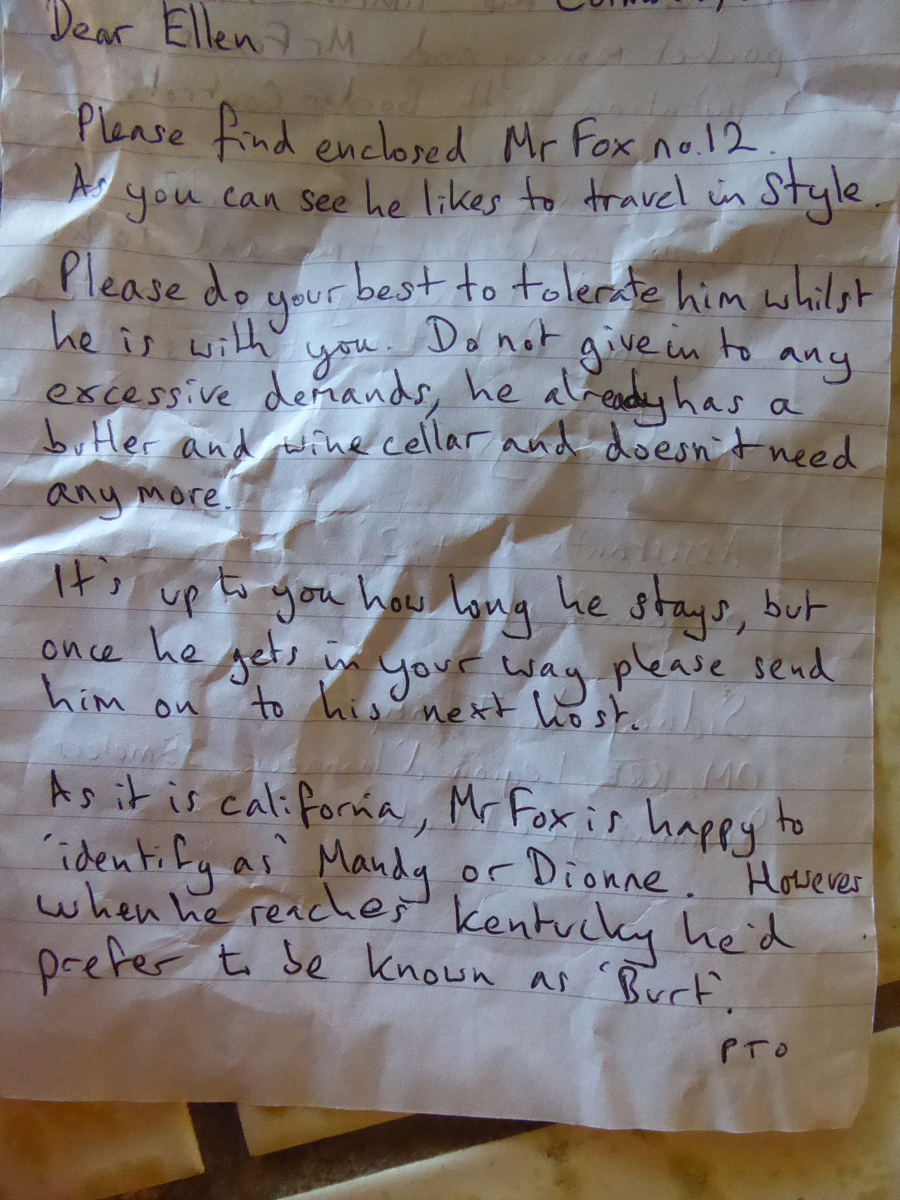 Dear Ellen
Please find enclosed Mr Fox no.12.
As you can see he likes to travel in Style.
Please do your best to tolerate him whilst
he is with you. Do not give in to any
excessive demands, he already has a
butler and wine cellar and doesn't need
any more.
It's up to you how long he stays, but
once he gets in your way please send
him on to his next host.
As it is california, Mr Fox is happy to
'identify as' Mandy or Dionne. However
when he reaches kentucky he'd
prefer to be known as 'Burt'.
PTO